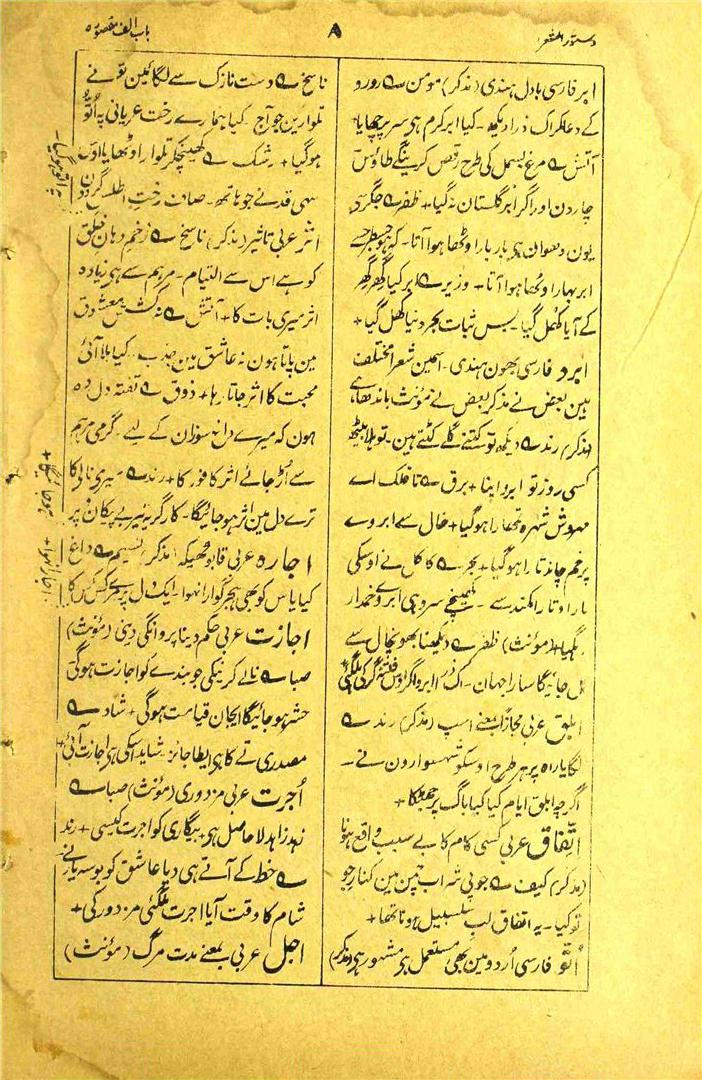 دستور الشعرا
۸
باب الف مقصورہ
ابر فارسی بادل ہندی (مذکر) مومن ے رورو
کے دعا کر اک ذرا دیکھ ۔ کیا ابر کرم ہی سر پر چھایا
آتش ے مرغ بسمل کی طرح رقص کرینگے طاؤس
چار دن اور اگر ابر گلستان نہ گیا + ظفر ے جگر سے
یون دھوان ہر بار بار اوٹھا ہوا آتا ۔ کہ ہو جسطرح سے
ابر بہار اوٹھا ہوا آتا + وزیر ے ابر کیا گھر گھر
کے آیا کھل گیا ۔ بس ثبات بحر دنیا کھل گیا +
ابرو فارسی بھون ہندی ۔ اسمین شعرا مختلف
ہین بعض نے مذکر بعض نے مؤنث باندھا ہے
(مذکر) رند ے دیکھ تو کتنے گلے کٹتے ہین ۔ تو ہلا بیٹھ
کسی روز تو ابرو اپنا + برق ے تا فلک اے
مہوش شہرہ تمھارا ہو گیا + خال سے ابروے
پرخم چاند تارا ہو گیا + بحر ے کاکل نے اوسکی
مارا اوتارا کمند سے ۔ کھینچے سروہی ابروے خمدار
رہگیا + (مؤنث) ظفر ے دیکھنا بھونچال سے
ہل جائیگا سارا جہان ۔ اک ذرا ابرو اگر اوس فتنہ گر کی ہلگئی
ابلق عربی مجازاً بمعنے اسپ (مذکر) رند ے
لگایا راہ پر ہر طرح اوسکو شہسوارون نے ۔
اگرچہ ابلق ایام کیا کیا باگ پر جھمکا +
اتّفاق عربی کسی کام کا بے سبب واقع ہونا
(مذکر) کیف ے جو پی شراب چمن مین کنار جو
تو کیا ۔ یہ اتفاق لب سلسبیل ہونا تھا +
اُتّو فارسی اُردو مین بھی مستعمل ہی مشہور ہی (مذکر)
ناسخ ے دست نازک سے لگائین تو نے
تلوارین جو آج ۔ کیا ہمارے رخت عریانی پہ اُتّو
ہو گیا + رشک ے کھینچکر تلوار اوٹھایا اوس
سہی قد نے جو ہاتھ ۔ صاف رخت اطلس گردون
اثر عربی تاثیر (مذکر) ناسخ ے زخم دہان خلق
کو ہے اس سے التیام ۔ مرہم سے ہی زیادہ
اثر میری بات کا + آتش ے نہ کشش معشوق
مین پاتا ہون نہ عاشق مین جذب ۔ کیا بلا آئی
محبت کا اثر جاتا رہا + ذوق ے تفتہ دل وہ
ہون کہ میرے داغ سوزان کے لیے ۔ گرمی مرہم
سے اُڑ جائے اثر کافور کا + رند ے میری نالے کا
ترے دل مین اثر ہو جائیگا ۔ کارگر یہ تیر بے پیکان پر
اجارہ عربی قابو ٹھیکہ (مذکر) نسیم ے داغ
کیا یاس کو بھی ہجر گوارا نہوا ۔ ایک دل پر مرے کس کس کا
اجازت عربی حکم دینا پروانگی دینی (مؤنث)
صبا ے نالے کرنیکی جو بندے کو اجازت ہو گی
حشر ہو جائیگا ایجان قیامت ہو گی + شاد ے
مصدری تے کا ہی ایطا جائز ۔ شاید اسکی ہی اجازت آئی +
اُجرت عربی مزدوری (مؤنث) صبا ے
زہد زاہد لا حاصل ہی + بیگاری کو اجرت کیسی + رند
ے خط کے آتے ہی دیا عاشق کو بوسہ یار نے
شام کا وقت آیا اجرت ملگئی مزدور کی +
اجل عربی بمعنے مدت مرگ (مؤنث)
پہ اتو ہو گیا ۔
ہو جائیگا +
اجارا نہوا +